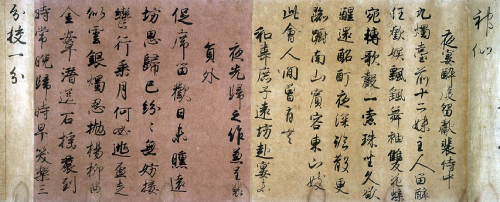 夜宴醉後留獻裴侍中
九燭臺前十二姝主人留醉
任歡娛飄飖舞袖雙飛蝶
宛轉歌聲一索珠坐久欲
醒還酩酊夜深臨散更
踟躕南山賓客東山妓
此會人間曾有無
和韋庶子遠坊赴宴未
夜先歸之作兼呈裴
員外
促席留歡日未曛遠
坊思歸已紛紛無妨按
轡行乘月何必逃盃走
似雲銀燭忍拋楊柳曲
金鞍潛送石榴裙到
時常晚歸時早笑樂三
分校一分